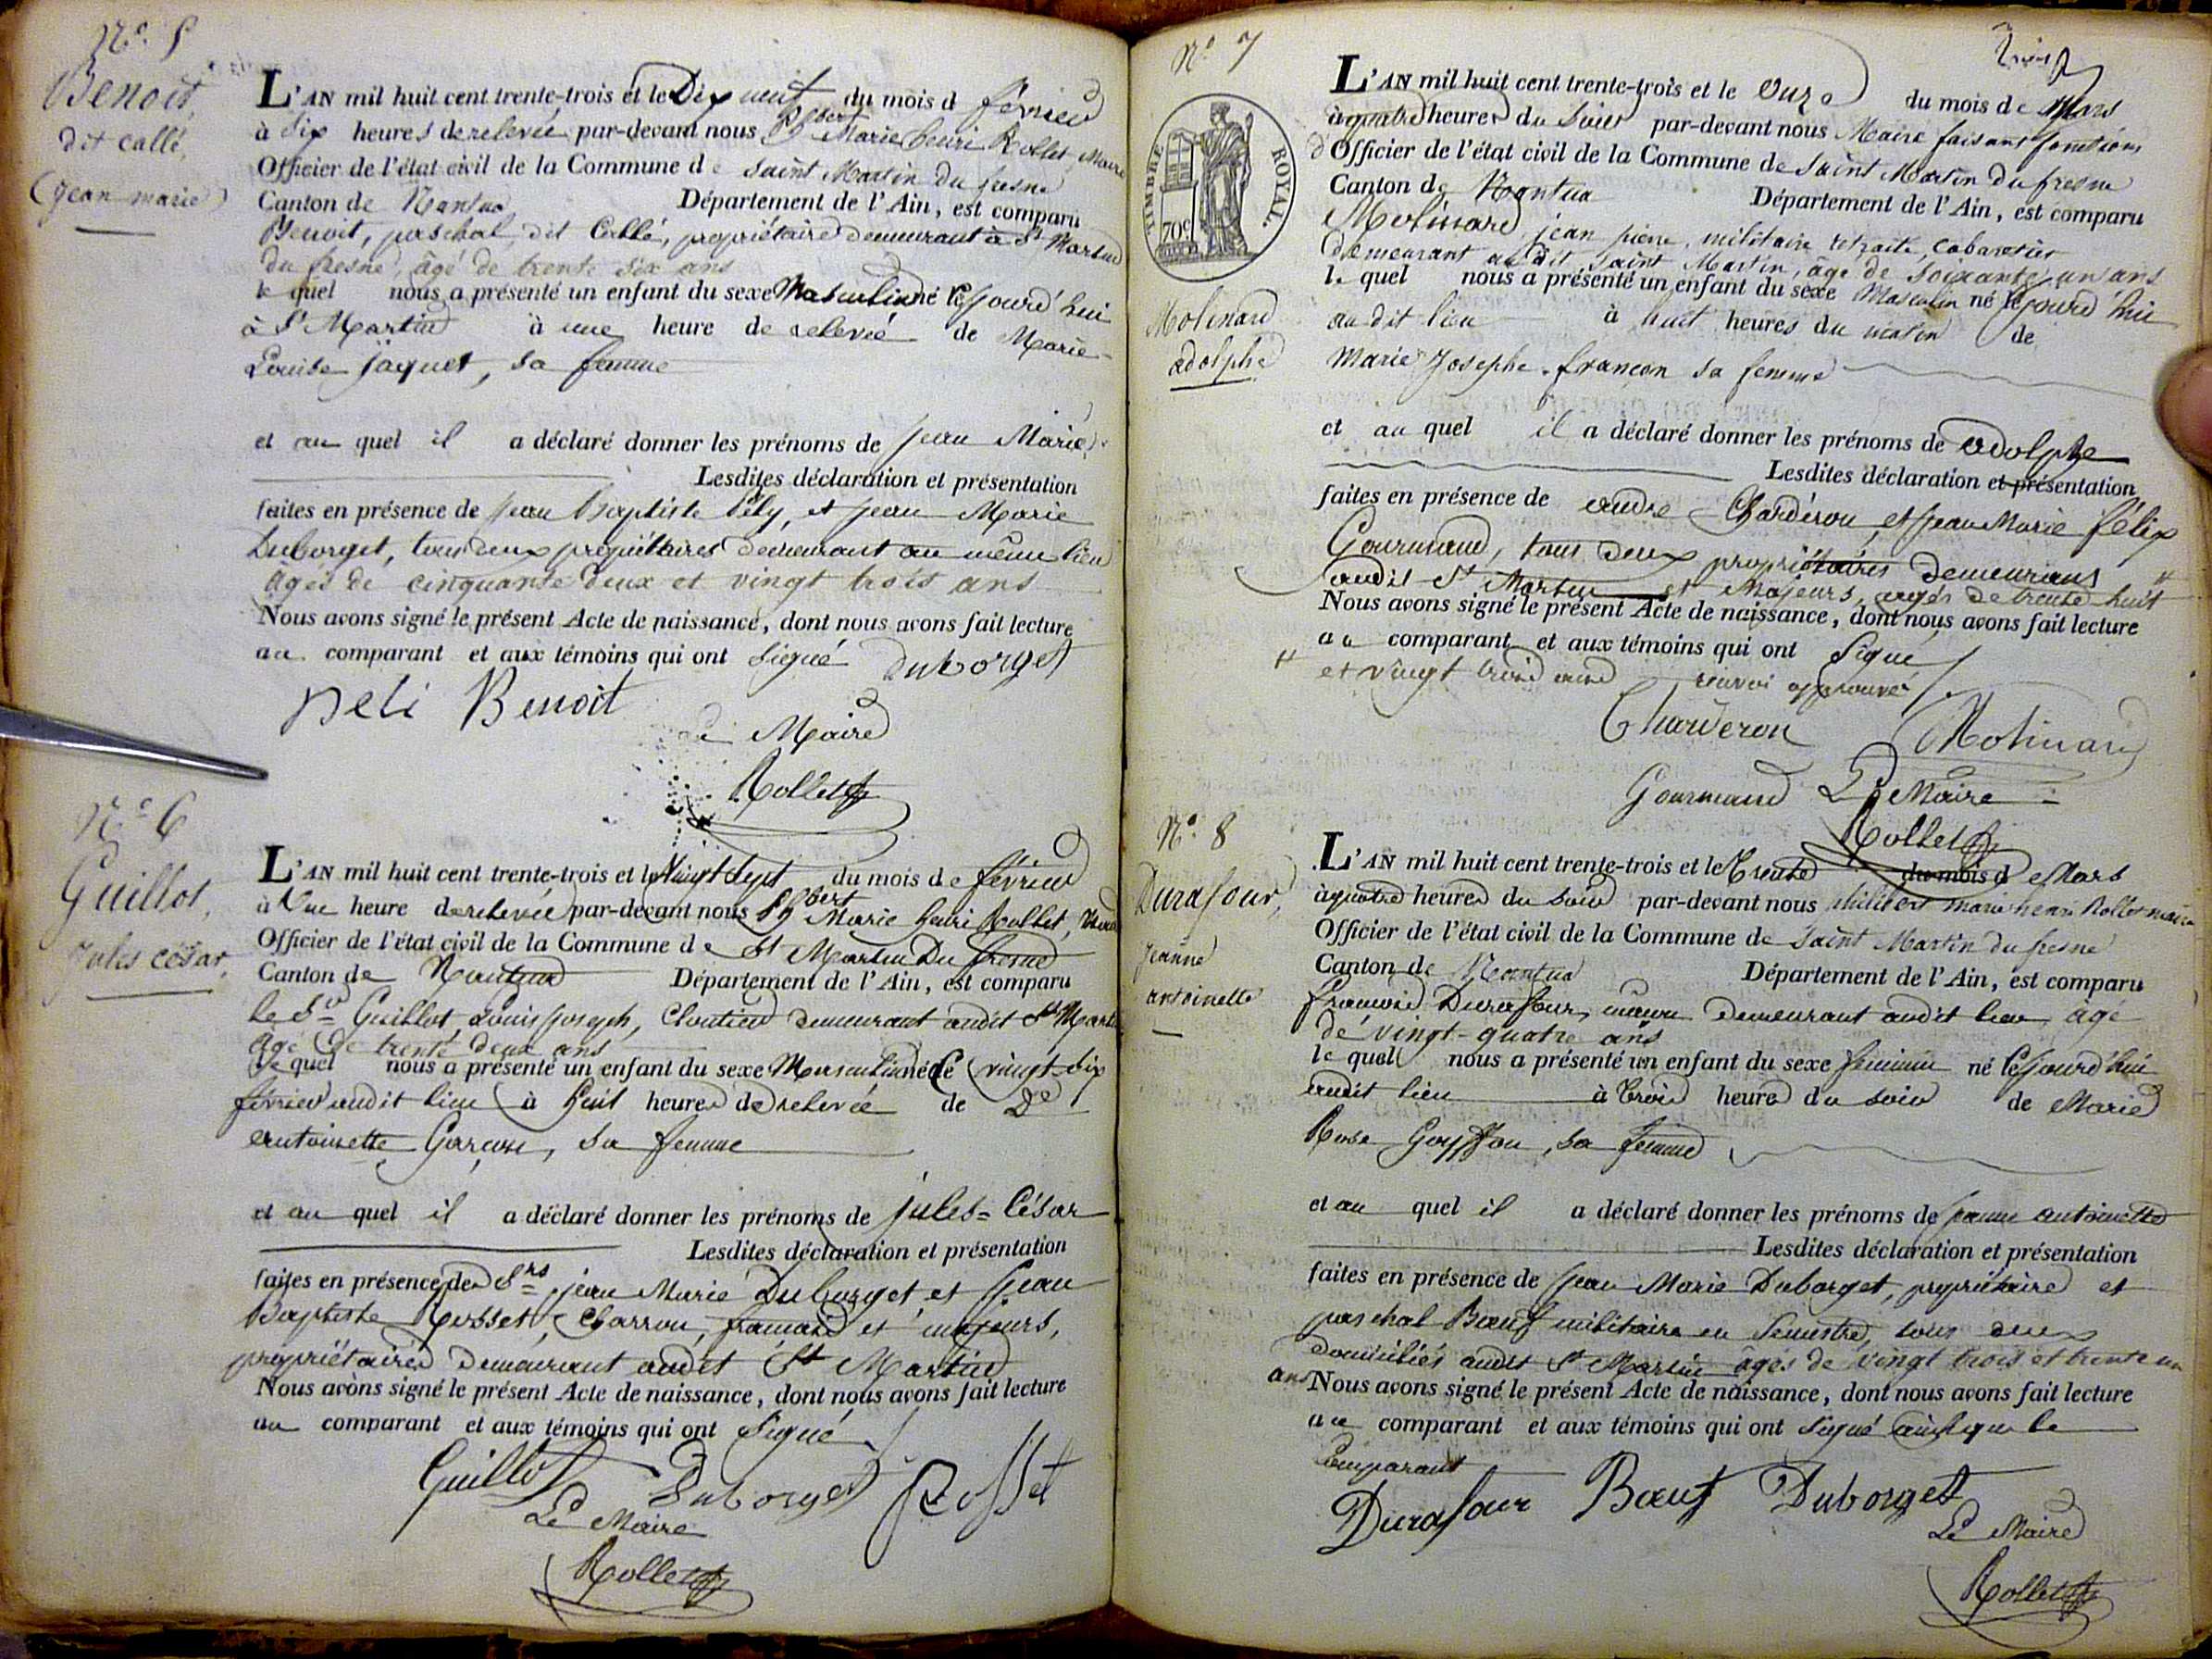 N.º 5
Benoit,
dit callé,
(jean marie)
L'AN mil huit cent trente-trois et le Dix neuf du mois d février
à six heures de relevée par-devant nous Phbert Marie henri Rollet, Maire
Officier de l'état civil de la Commune de saint Martin du fresne
Canton de Nantua Département de l'Ain, est comparu
Benoit, paschal, dit Callé, propriétaire demeurant à St Martin
du fresne, âgé de trente six ans
le quel nous a présenté un enfant du sexe Masculin né cejourd'hui
à St Martin à une heure de relevée de Marie
Louise jaquet, sa femme
et au quel il a déclaré donner les prénoms de jean Marie.
Lesdites déclaration et présentation
faites en présence de jean Baptiste Pély, et jean Marie
Duborget, tous deux propriétaires demeurant au même lieu
âgés de cinquante deux et vingt trois ans
Nous avons signé le présent Acte de naissance, dont nous avons fait lecture
au comparant et aux témoins qui ont signé Duborget
peli Benoit
Le Maire
Rollet
N.º 6
Guillot,
jules césar,
L'AN mil huit cent trente-trois et le Vingt Sept du mois de février
à Une heure de relevée par-devant nous Phbert Marie henri Rollet, Maire
Officier de l'état civil de la Commune de St Martin Du fresne
Canton de Nantua Département de l'Ain, est comparu
le Sr Guillot, Louis joseph, Cloutier demeurant audit St Martin
âgé de trente deux ans
le quel nous a présenté un enfant du sexe Masculin né le vingt six
février audit lieu à huit heures de relevée de De
antoinette Garçon, sa femme
et au quel il a déclaré donner les prénoms de jules=César
Lesdites déclaration et présentation
faites en présence des Srs jean Marie Duborget et jean
Baptiste Rosset, Charron, français et majeurs,
propriétaires demeurant audit St Martin
Nous avons signé le présent Acte de naissance, dont nous avons fait lecture
au comparant et aux témoins qui ont signé
Guillot Duborget Rosset
Le Maire
Rollet
Trois
N.º 7
TIMBRE ROYAL.
70c
Molinard
adolphe
L'AN mil huit cent trente-trois et le Onze du mois de Mars
à quatre heures du soir par-devant nous Maire faisant fonctions
d'Officier de l'état civil de la Commune de Saint Martin du fresne
Canton de Nantua Département de l'Ain, est comparu
Molinard jean pierre, militaire retraité, cabaretier
demeurant au dit Saint Martin, âgé de soixante un ans
le quel nous a présenté un enfant du sexe Masculin né cejourd'hui
au dit lieu à huit heures du matin de
Marie Josephe françon sa femme
et au quel il a déclaré donner les prénoms de adolphe
Lesdites déclaration et présentation
faites en présence de andré Charderon, et jean Marie félix
Gourmand, tous deux propriétaires demeurans
audit St Martin et Majeurs, agés de trente huit #
Nous avons signé le présent Acte de naissance, dont nous avons fait lecture
au comparant et aux témoins qui ont signé
# et vingt trois ans renvoi approuvé
Charderon Molinard
Gourmand Le Maire
Rollet
N.º 8
Durafour,
jeanne
antoinette
L'AN mil huit cent trente-trois et le Trente du mois d Mars
à quatre heures du soir par-devant nous philibert marie henri Rollet maire
Officier de l'état civil de la Commune de Saint Martin du fresne
Canton de Nantua Département de l'Ain, est comparu
françois Durafour, maçon demeurant audit lieu, âgé
de vingt-quatre ans
le quel nous a présenté un enfant du sexe féminin né cejourd'hui
audit lieu à trois heures du soir de Marie
Rose Goyffon, sa femme
et au quel il a déclaré donner les prénoms de jeanne antoinette
Lesdites déclaration et présentation
faites en présence de jean Marie Duborget, propriétaire et
paschal Bœuf militaire en Semestre, tous deux
domiciliés audit St Martin âgés de vingt trois et trente un
ans Nous avons signé le présent Acte de naissance, dont nous avons fait lecture
au comparant et aux témoins qui ont signé ainsi que le
Comparant
Durafour Bœuf Duborget
Le Maire
Rollet